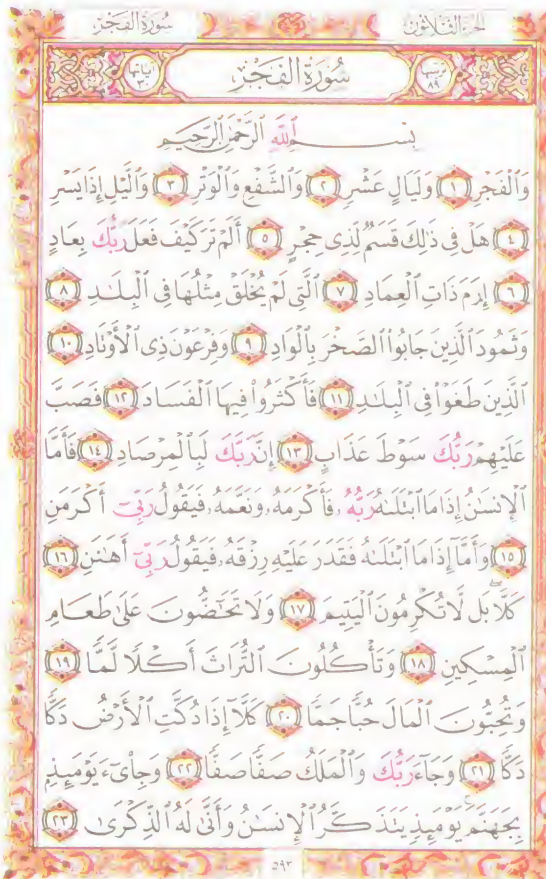 سُورَةُ الفَجْرِ الجُزْءُ الثَّلَاثُونَ
آيَاتُهَا ٣٠ سُورَةُ الفَجْرِ تَرْتِيبُهَا ٨٩
بِسْمِ ٱللَّهِ ٱلرَّحْمَٰنِ ٱلرَّحِيمِ
وَٱلْفَجْرِ ١ وَلَيَالٍ عَشْرٍ ٢ وَٱلشَّفْعِ وَٱلْوَتْرِ ٣ وَٱلَّيْلِ إِذَا يَسْرِ
٤ هَلْ فِى ذَٰلِكَ قَسَمٌ لِّذِى حِجْرٍ ٥ أَلَمْ تَرَ كَيْفَ فَعَلَ رَبُّكَ بِعَادٍ
٦ إِرَمَ ذَاتِ ٱلْعِمَادِ ٧ ٱلَّتِى لَمْ يُخْلَقْ مِثْلُهَا فِى ٱلْبِلَٰدِ ٨
وَثَمُودَ ٱلَّذِينَ جَابُوا۟ ٱلصَّخْرَ بِٱلْوَادِ ٩ وَفِرْعَوْنَ ذِى ٱلْأَوْتَادِ ١٠
ٱلَّذِينَ طَغَوْا۟ فِى ٱلْبِلَٰدِ ١١ فَأَكْثَرُوا۟ فِيهَا ٱلْفَسَادَ ١٢ فَصَبَّ
عَلَيْهِمْ رَبُّكَ سَوْطَ عَذَابٍ ١٣ إِنَّ رَبَّكَ لَبِٱلْمِرْصَادِ ١٤ فَأَمَّا
ٱلْإِنسَٰنُ إِذَا مَا ٱبْتَلَىٰهُ رَبُّهُۥ فَأَكْرَمَهُۥ وَنَعَّمَهُۥ فَيَقُولُ رَبِّىٓ أَكْرَمَنِ
١٥ وَأَمَّآ إِذَا مَا ٱبْتَلَىٰهُ فَقَدَرَ عَلَيْهِ رِزْقَهُۥ فَيَقُولُ رَبِّىٓ أَهَٰنَنِ ١٦
كَلَّا ۖ بَل لَّا تُكْرِمُونَ ٱلْيَتِيمَ ١٧ وَلَا تَحَٰٓضُّونَ عَلَىٰ طَعَامِ
ٱلْمِسْكِينِ ١٨ وَتَأْكُلُونَ ٱلتُّرَاثَ أَكْلًا لَّمًّا ١٩
وَتُحِبُّونَ ٱلْمَالَ حُبًّا جَمًّا ٢٠ كَلَّآ إِذَا دُكَّتِ ٱلْأَرْضُ دَكًّا
دَكًّا ٢١ وَجَآءَ رَبُّكَ وَٱلْمَلَكُ صَفًّا صَفًّا ٢٢ وَجِا۟ىٓءَ يَوْمَئِذٍۭ
بِجَهَنَّمَ ۚ يَوْمَئِذٍ يَتَذَكَّرُ ٱلْإِنسَٰنُ وَأَنَّىٰ لَهُ ٱلذِّكْرَىٰ ٢٣
٥٩٣